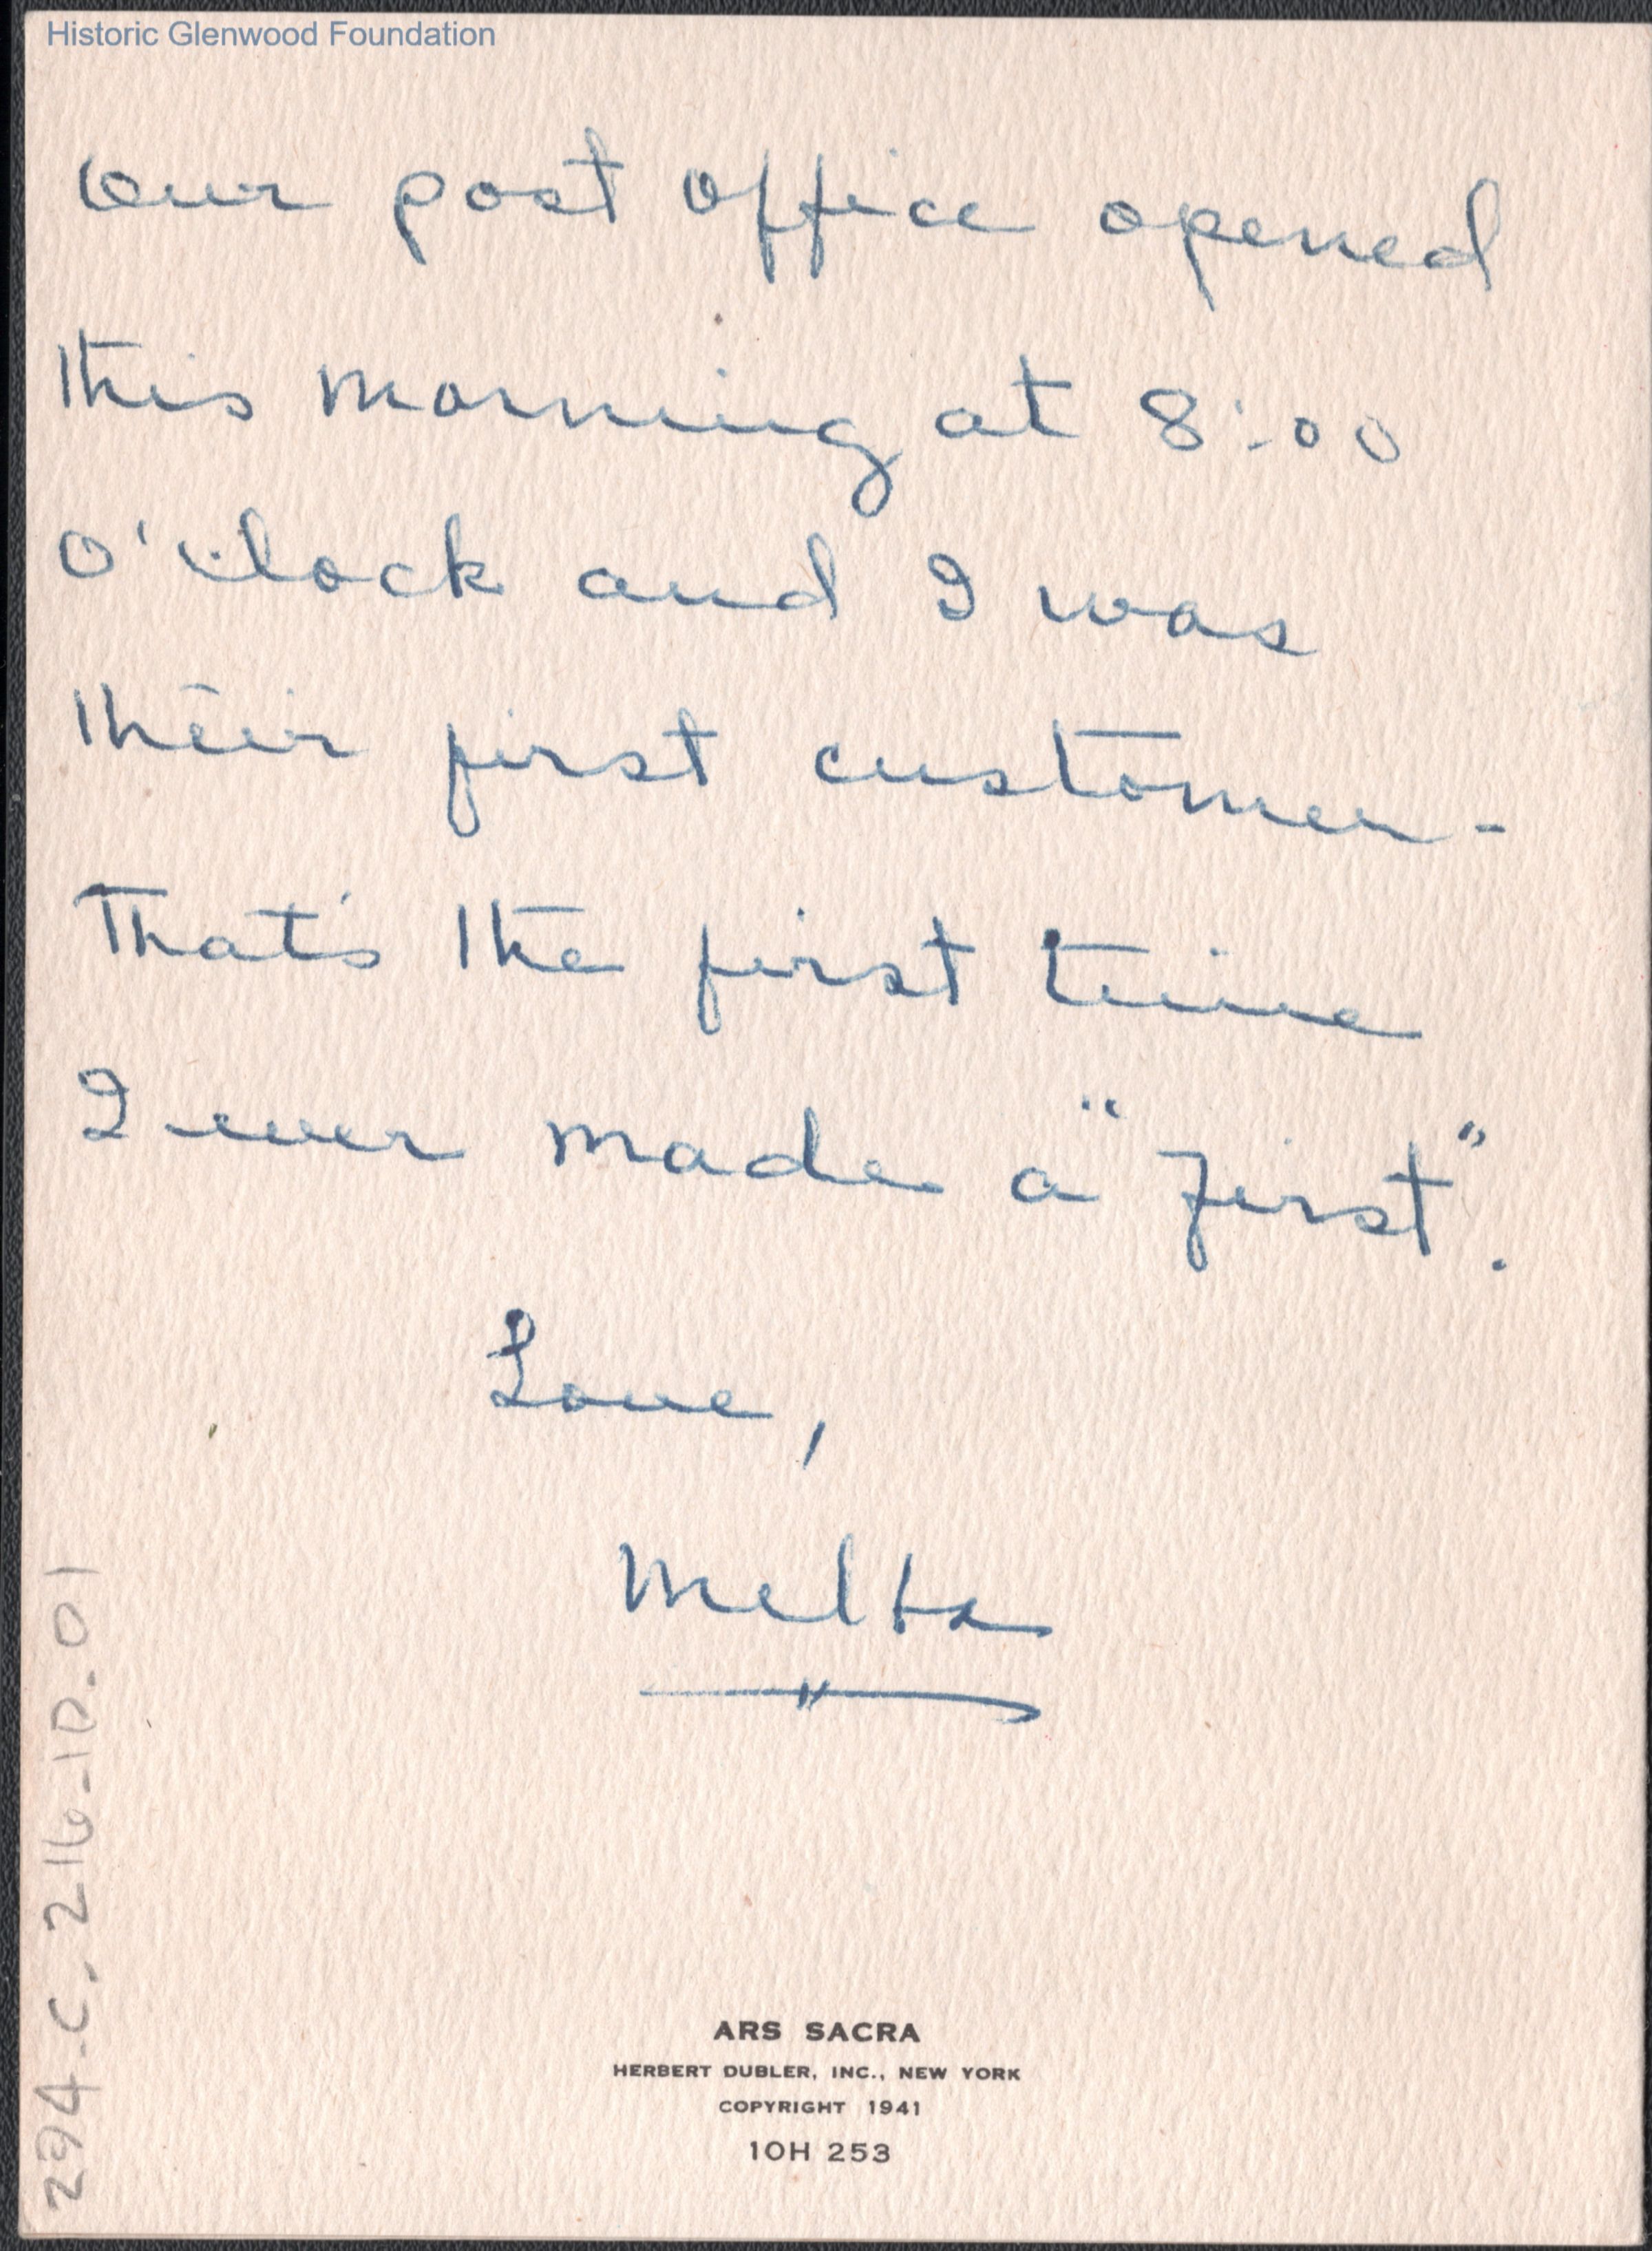 Historic Glenwood Foundation
Our post office opened
this morning at 8:00
o'clock and I was
their first customer -
That's the first time
I ever made a "first".
Love,
Melba
ARS SACRA
HERBERT DUBLER, INC., NEW YORK
COPYRIGHT 1941
10H 253
294.C.216-1D.01